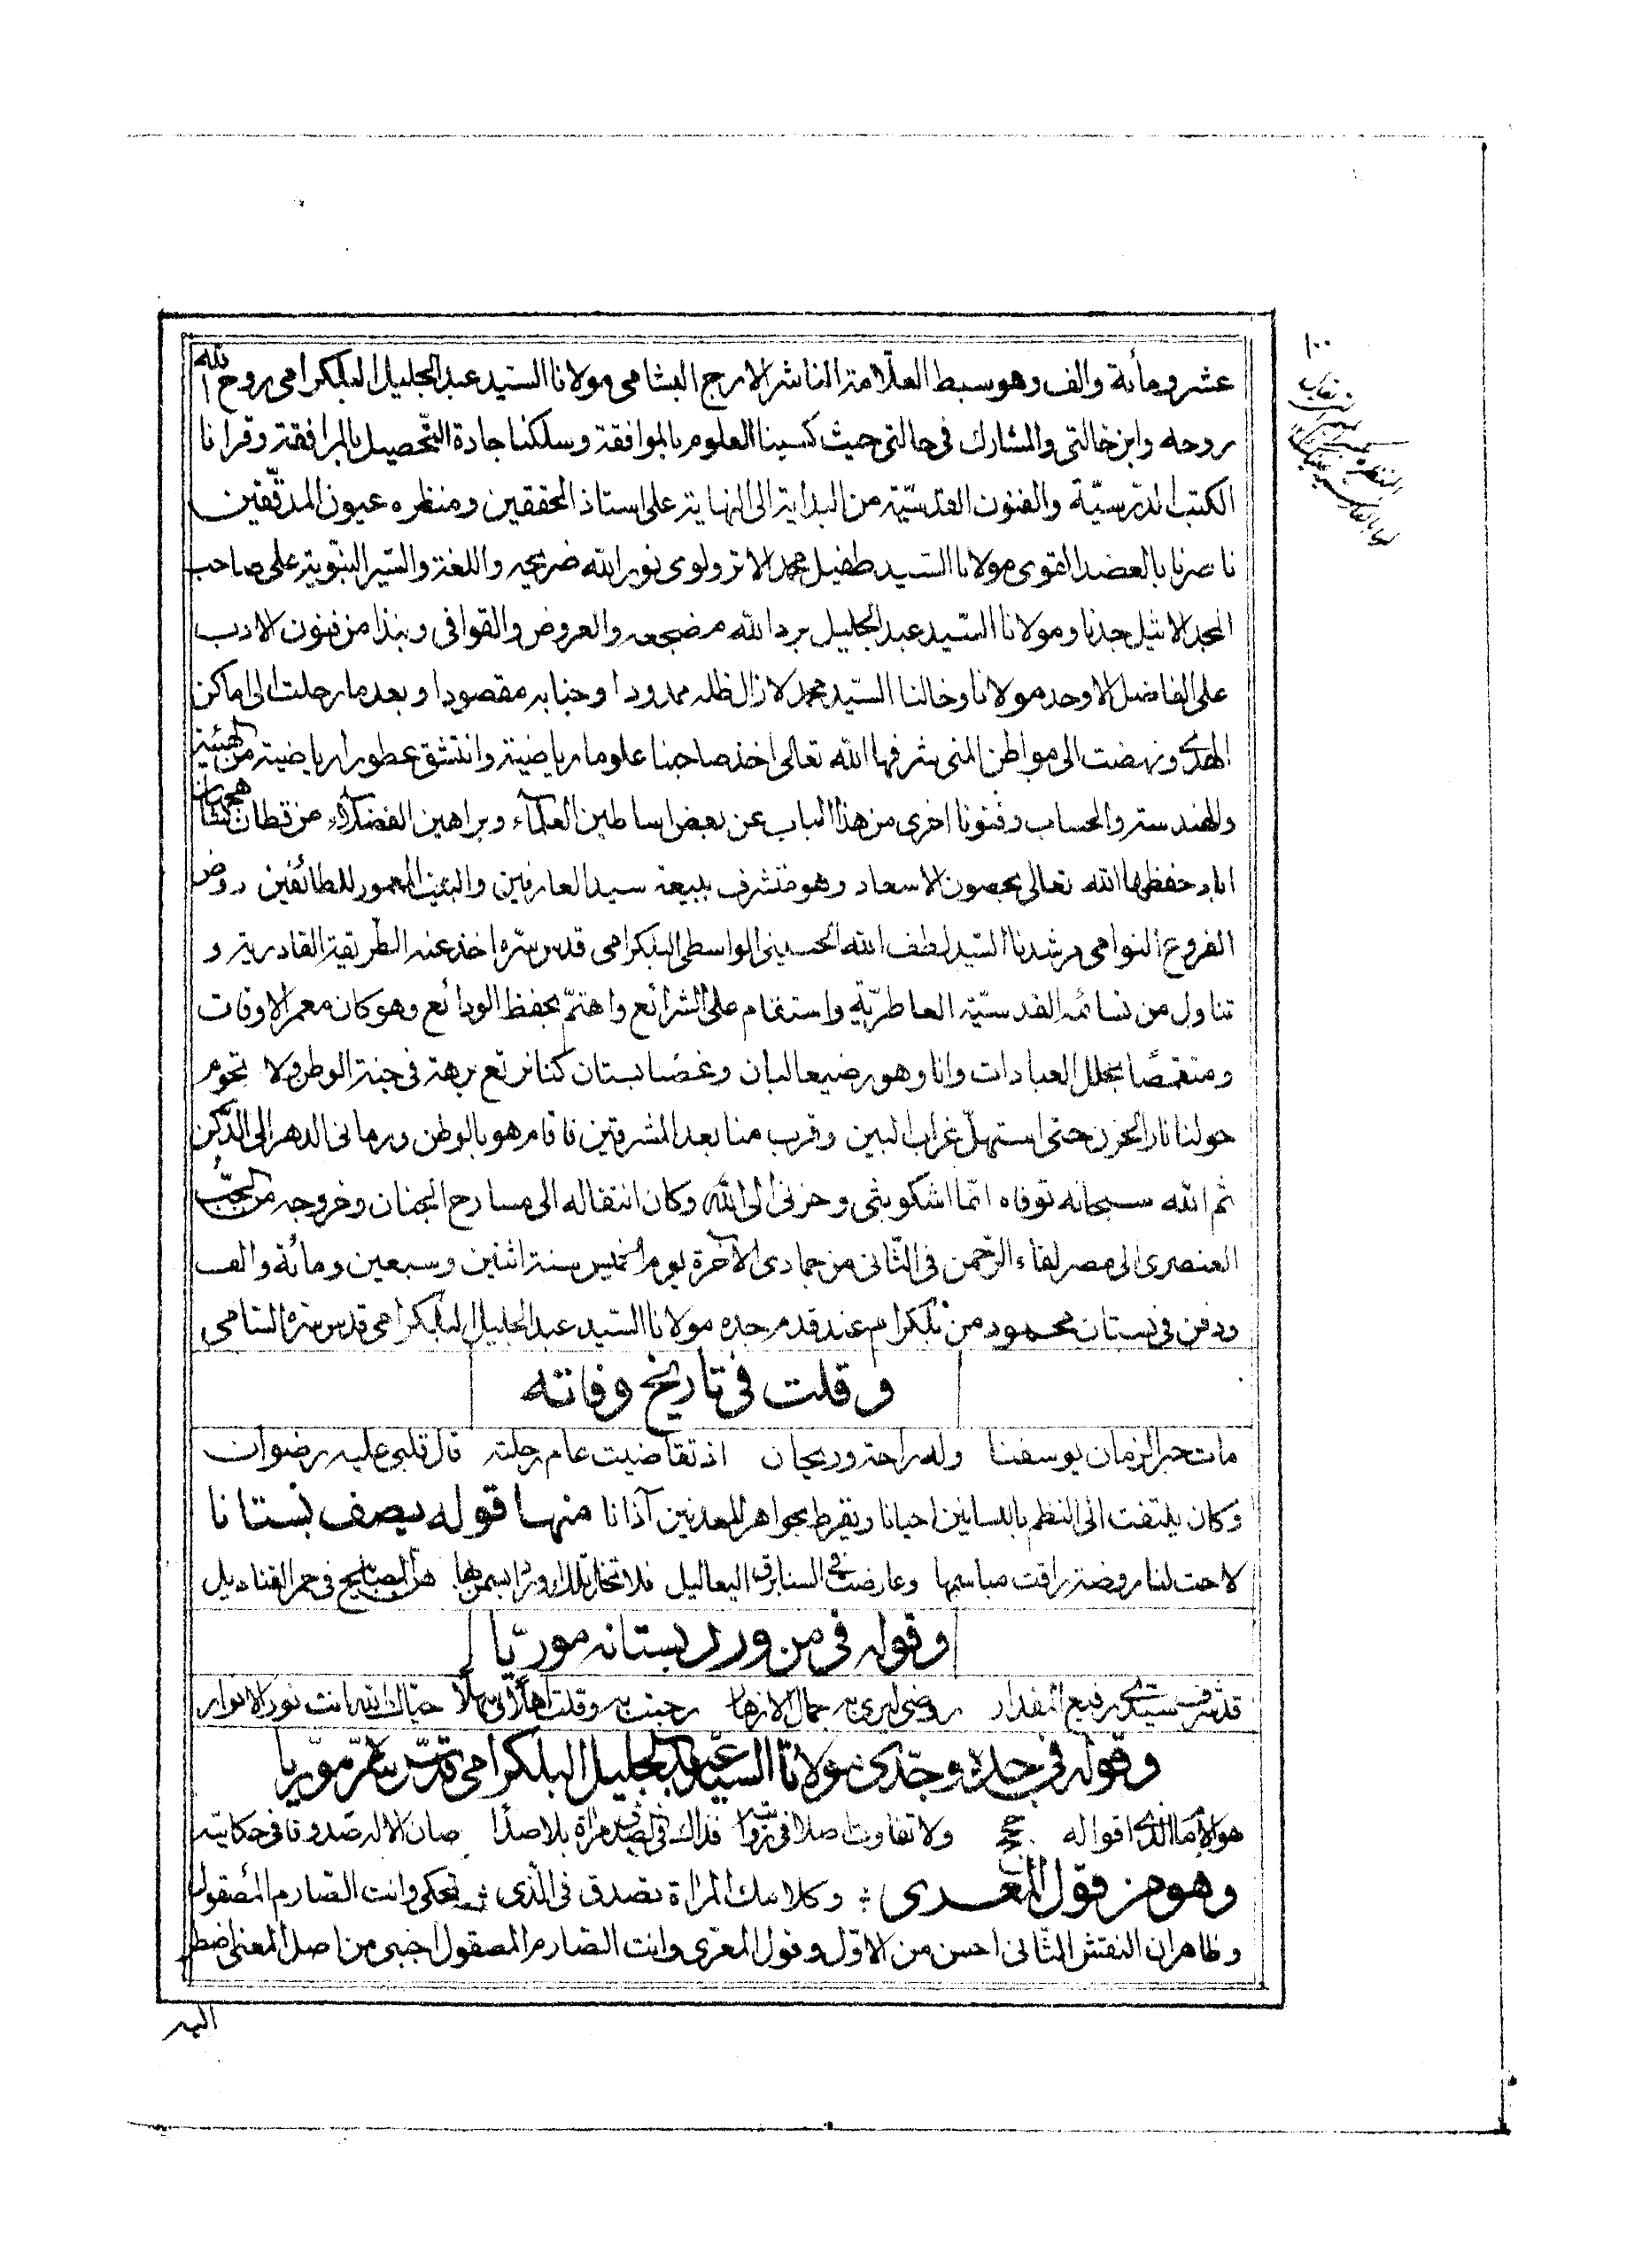 ١٠٠
عشر ومأية والف وهو سبط العلامة الناشر الارج البشامي مولانا السيد عبد الجليل البلكرامي روح الله
روحه وابن خالتي والمشارك في حالتي حيث كسبنا العلوم بالموافقة وسلكنا جادة التحصيل بالمرافقة وقرانا
الكتب الدرسية والفنون القدسية من البداية الى النهاية على استاذ المحققين ومنظره عيون المدققين
ناصرنا بالعضد القوى مولانا السيد طفيل محمد الاترولوى نور الله ضريحه واللغة والسير النبوية على صاحب
المجد الاثيل جدنا ومولانا السيد عبد الجليل برد الله مضجعه والعروض والقوافي ونبذا من فنون الادب
على الفاضل الاوحد مولانا وخالنا السيد محمد لازال ظله ممدودا وجنابه مقصودا وبعد ما رحلت الى اماكن
الهدى ونهضت الى مواطن المنى شرفها الله تعالى اخذ صاحبنا علوما رياضية وانتشق عطورا رياضية من الهيئة
والهندسة والحساب وفنونا اخرى من هذا الباب عن بعض اساطين العلماء وبراهين الفضلاء من قطان شاهجهان
اباد حفظها الله تعالى بحصون الاسعاد وهو متشرف ببيعة سيد العارفين والبيت المعمور للطائفين روض
الفروع النوامي مرشدنا السيد لطف الله الحسيني الواسطى البلكرامى قدس سره اخذ عنه الطريقة القادرية و
تناول من نسائمه القدسية العاطرية واستقام على الشرائع واهتم بحفظ الودائع وهو كان معمر الاوقات
ومتقمصا بحلل العبادات وانا وهو رضيعا لبان وغصنا بستان كنا نرتع برهة في جنة الوطن ولا تحوم
حولنا نار الحزن حتى استهل غراب البين وقرب منا بعد المشرقين فاقام هو بالوطن ورماني الدهر الى الدكن
ثم الله سبحانه توفاه انما اشكو بثي وحزني الى الله وكان انتقاله الى مسارح الجنان وخروجه من الجب
العنصرى الى مصر لقاء الرحمن في الثانى من جمادى الآخرة يوم الخميس سنة اثنين وسبعين ومائة والف
ودفن في بستان محمود من بلكرام عند قدم جده مولانا السيد عبد الجليل البلكرامى قدس سره السامى
وقلت في تاريخ وفاته
مات حبر الزمان يوسفنا وله راحة وريحان اذ تقاضيت عام رحلته قال قلبى عليه رضوان
وكان يلتفت الى النظم باللسانين احيانا ويقرط بجواهر المعدنين آذانا منها قوله يصف بستانا
لاحت لنا روضة راقت مباسمها وعارضت في السنا برق البعاليل فلا تخل تلك اورادا بسمن بها هن المصابيح في حمر القناديل
وقوله في من ورد بستانه موريا
قد شرف سيد رفيع المقدار روضى ليرى به جمال الازهار رحبت به وقلت اهلا سهلا حياك الله انت نور الانوار
وقوله في جده وجدى مولانا السيد عبد الجليل البلكرامى قدس سره موريا
هو الامام الذى اقواله ولا تفاوت اصلا في فذاك في الصدق مرآة بلا صدأ صان الاله صدوقا في حكايته
وهو من قول المعرى وكلامك المرآة تصدق في الذى تحكى وانت الصارم المصقول
وظاهر ان النقش الثانى احسن من الاول وقول المعرى وانت الصارم المصقول اجنبى من اصل المعنى اضطر
اليه